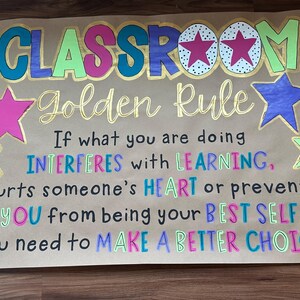 CLASSROOM
golden Rule
If what you are doing
INTERFERES with LEARNING,
urts someone's HEART or preven
YOU from being your BEST SELF
u need to MAKE A BETTER CHOI